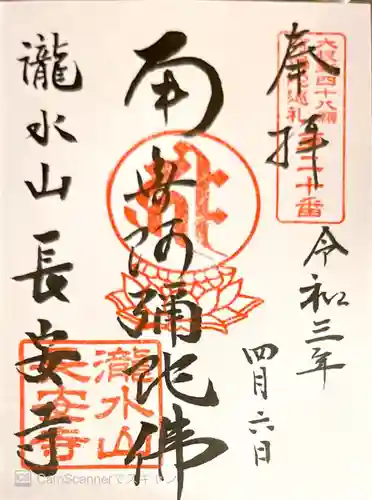 奉拝
令和三年
四月六日
南無阿彌陀佛
瀧水山長安寺
二十番
瀧水山
長安寺
CamScannerでスキャン